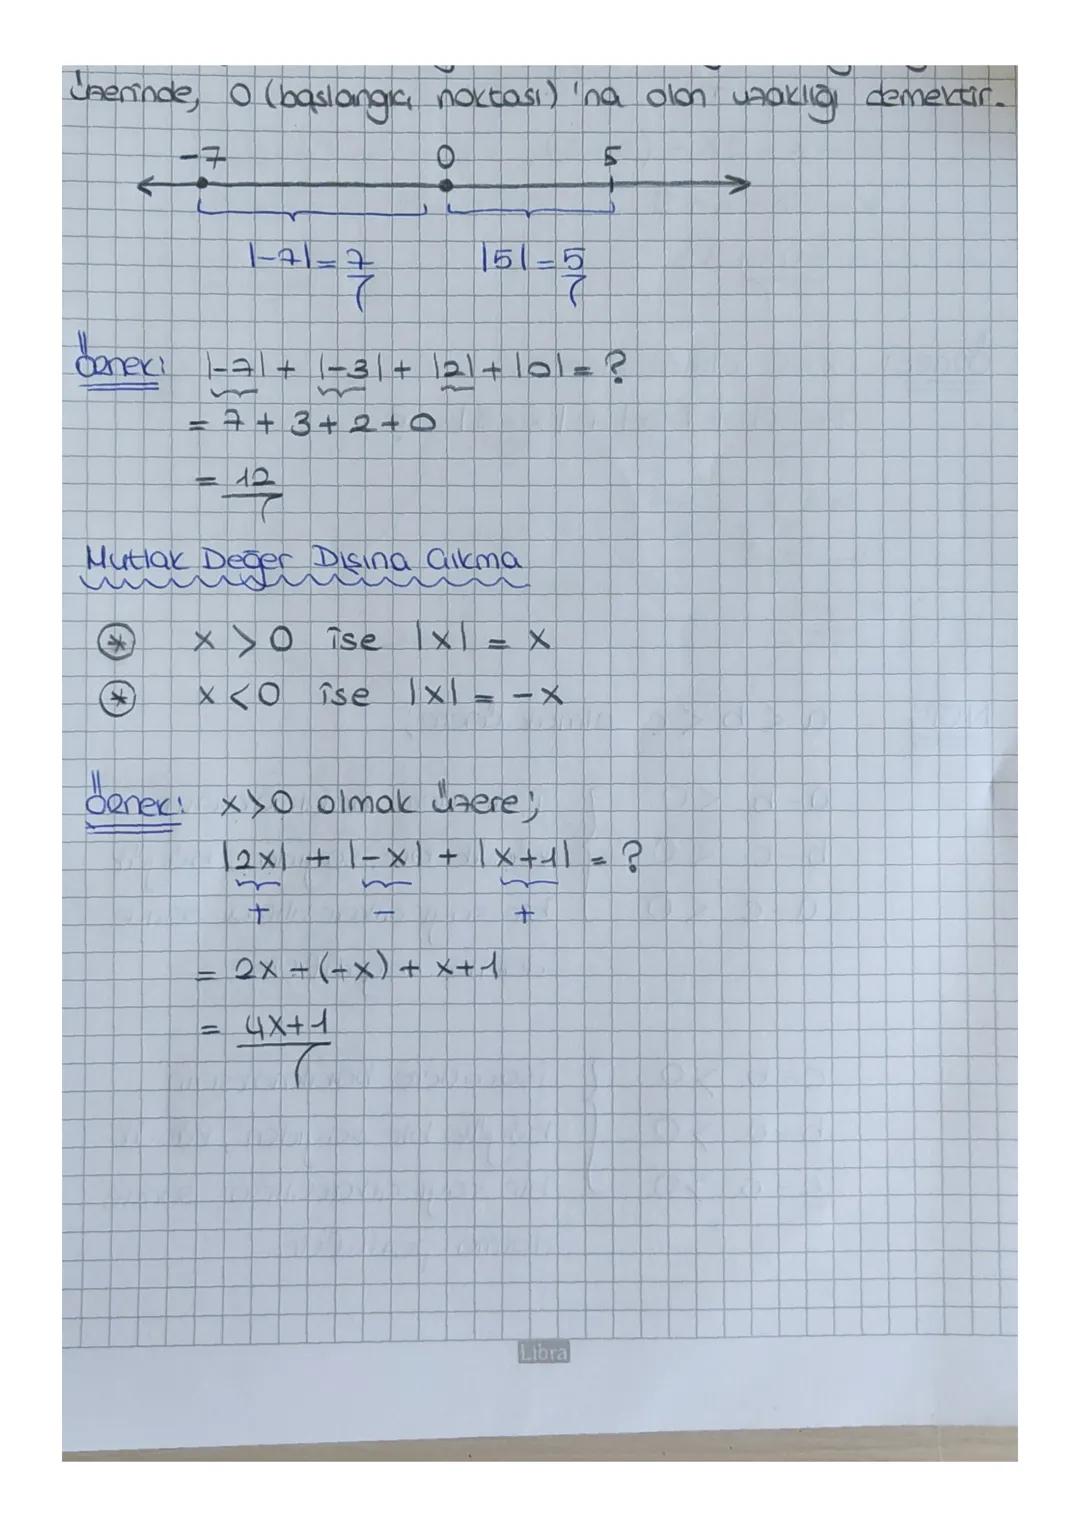 üzerinde, 0 (başlangıç noktası) 'na olan uzaklığı demektir.
-7 0 5
|-7| = 7 |5| = 5
Örnek: |-7| + |-3| + |2| + |0| = ?
= 7 + 3 + 2 + 0
= 12
Mutlak Değer Dışına Çıkma
* x > 0 ise |x| = x
* x < 0 ise |x| = -x
Örnek: x > 0 olmak üzere;
|2x| + |-x| + |x+1| = ?
+ - +
= 2x - (-x) + x+1
= 4x+1
Libra